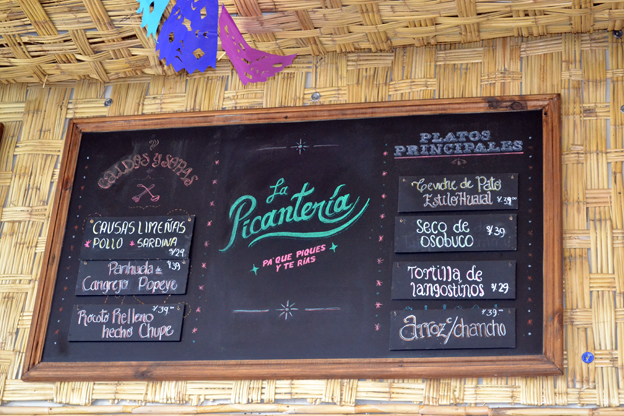 CALDOS Y SOPAS
CAUSAS LIMEÑAS
POLLO SARDINA
￥29
Parihuela de ￥39
Cangrejo Popeye
Rocoto Relleno ￥39
hecho Chupe
La
Picantería
PA' QUE PIQUES
Y TE RÍAS
PLATOS
PRINCIPALES
de Pato ￥39
Estilo Huaral
Seco de
OSOBUCO ￥39
Tortilla de
langostinos ￥29
￥39
Arroz c/chancho